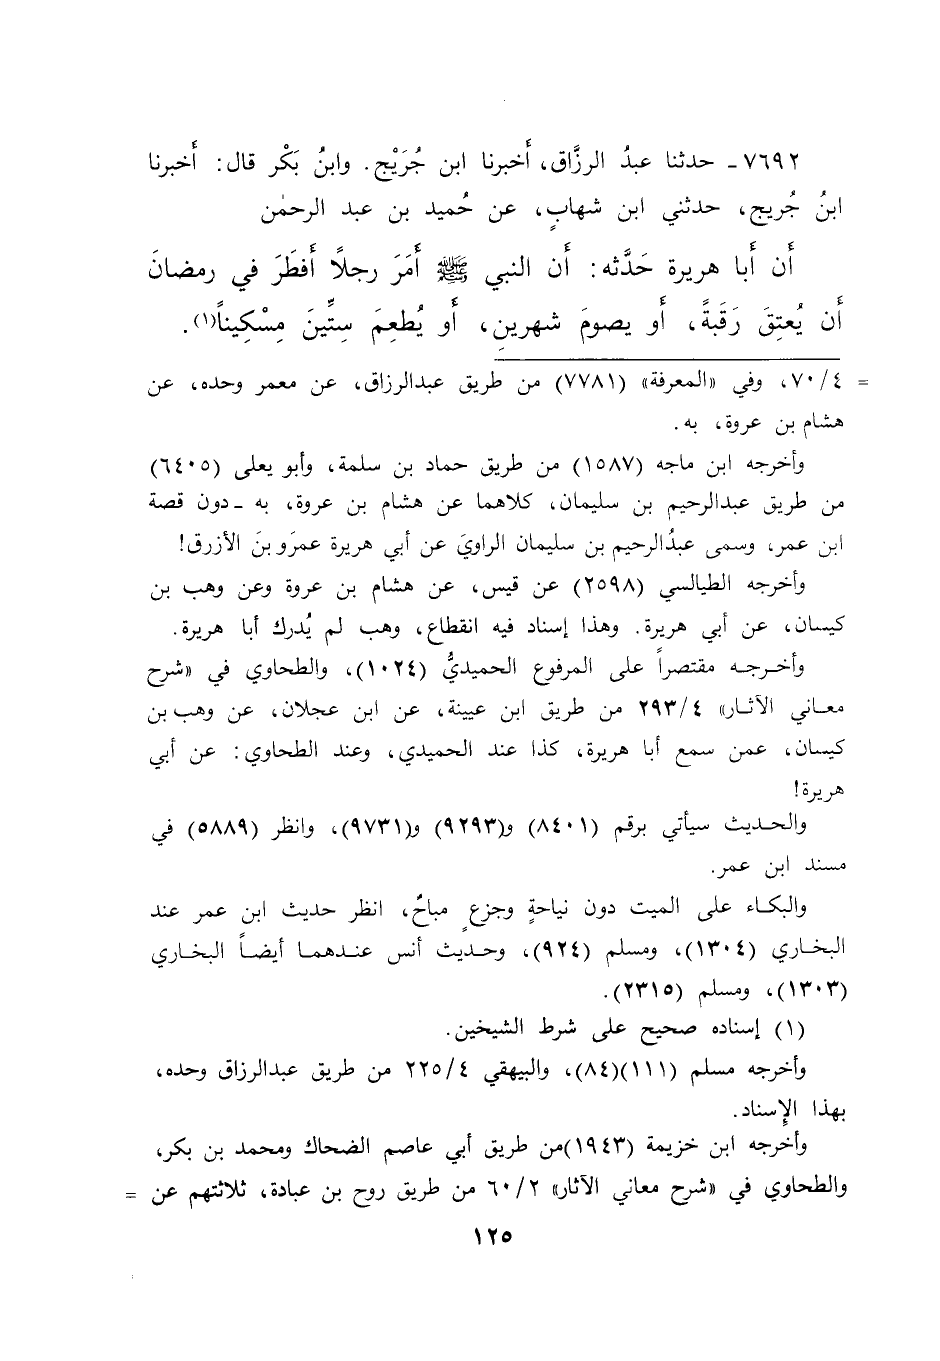 ٧٦٩٢ـ حدثنا عبدُ الرزَّاق، أَخبرنا ابن جُرَيْج. وابنُ بَكْر قال: أَخبرنا
ابنُ جُريج، حدثني ابن شهابٍ، عن حُميد بن عبد الرحمٰن
أَن أَبا هريرة حَدَّثه: أَن النبي ﷺ أَمَرَ رجلاً أَفطَرَ في رمضانَ
أَن يُعتِقَ رَقَبةً، أَو يصومَ شهرينِ، أَو يُطعِمَ ستِّينَ مِسْكِيناً(١).
= ٧٠/٤، وفي «المعرفة» (٧٧٨١) من طريق عبدالرزاق، عن معمر وحده، عن
هشام بن عروة، به.
وأخرجه ابن ماجه (١٥٨٧) من طريق حماد بن سلمة، وأبو يعلى (٦٤٠٥)
من طريق عبدالرحيم بن سليمان، كلاهما عن هشام بن عروة، به ـدون قصة
ابن عمر، وسمى عبدُالرحيم بن سليمان الراويَ عن أبي هريرة عمرَو بنَ الأزرق!
وأخرجه الطيالسي (٢٥٩٨) عن قيس، عن هشام بن عروة وعن وهب بن
كيسان، عن أبي هريرة. وهذا إسناد فيه انقطاع، وهب لم يُدرك أبا هريرة.
وأخـرجـه مقتصراً على المرفوع الحميديُّ (١٠٢٤)، والطحاوي في «شرح
معـاني الآثـار» ٢٩٣/٤ من طريق ابن عيينة، عن ابن عجلان، عن وهب بن
كيسان، عمن سمع أبا هريرة، كذا عند الحميدي، وعند الطحاوي: عن أبي
هريرة!
والحـديث سيأتي برقم (٨٤٠١) و(٩٢٩٣) و(٩٧٣١)، وانظر (٥٨٨٩) في
مسند ابن عمر.
والبكـاء على الميت دون نياحةٍ وجزعٍ مباحٌ، انظر حديث ابن عمر عند
البخـاري (١٣٠٤)، ومسلم (٩٢٤)، وحـديث أنس عنـدهمـا أيضـاً البخـاري
(١٣٠٣)، ومسلم (٢٣١٥).
(١) إسناده صحيح على شرط الشيخين.
وأخرجه مسلم (١١١)(٨٤)، والبيهقي ٢٢٥/٤ من طريق عبدالرزاق وحده،
بهذا الإِسناد.
وأخرجه ابن خزيمة (١٩٤٣)من طريق أبي عاصم الضحاك ومحمد بن بكر،
والطحاوي في «شرح معاني الآثار» ٦٠/٢ من طريق روح بن عبادة، ثلاثتهم عن =
١٢٥